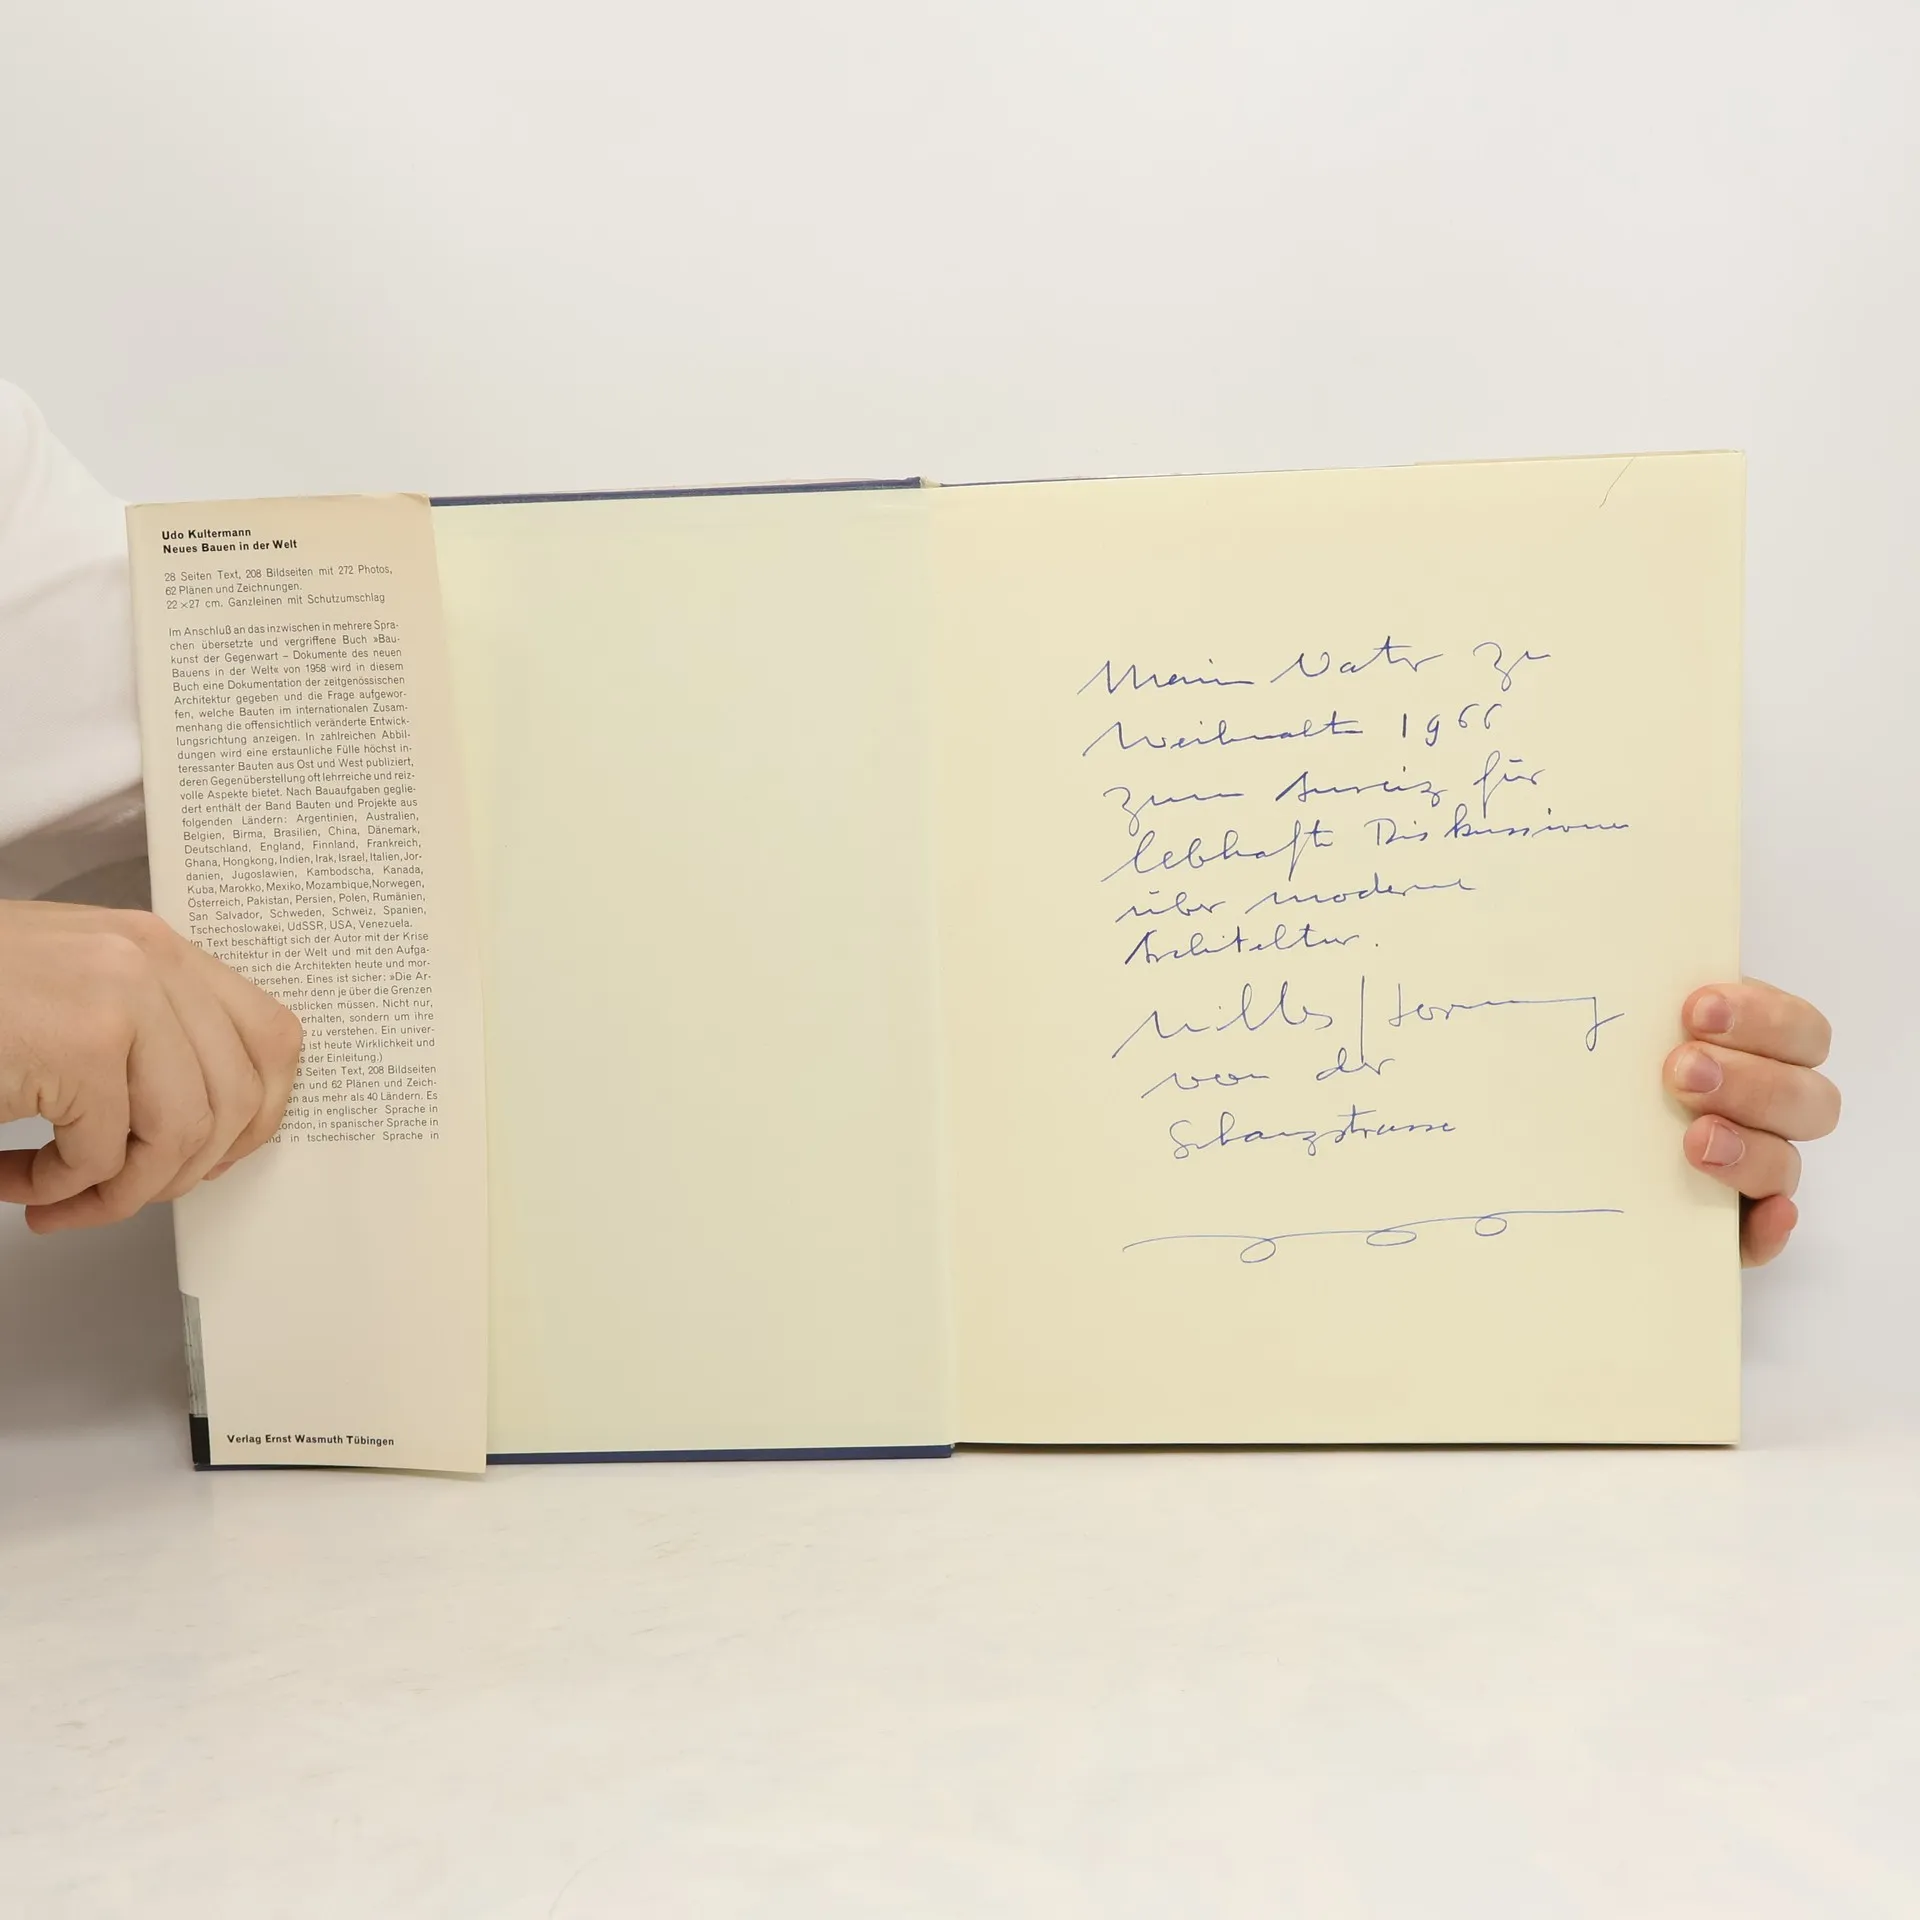 Udo Kultermann
Neues Bauen in der Welt
28 Seiten Text, 208 Bildseiten mit 272 Photos,
62 Plänen und Zeichnungen.
22×27 cm. Ganzleinen mit Schutzumschlag
Im Anschluß an das inzwischen in mehrere Spra-
chen übersetzte und vergriffene Buch »Bau-
kunst der Gegenwart – Dokumente des neuen
Bauens in der Welt« von 1958 wird in diesem
Buch eine Dokumentation der zeitgenössischen
Architektur gegeben und die Frage aufgewor-
fen, welche Bauten im internationalen Zusam-
menhang die offensichtlich veränderte Entwick-
lungsrichtung anzeigen. In zahlreichen Abbil-
dungen wird eine erstaunliche Fülle höchst in-
teressanter Bauten aus Ost und West publiziert,
deren Gegenüberstellung oft lehrreiche und reiz-
volle Aspekte bietet. Nach Bauaufgaben geglie-
dert enthält der Band Bauten und Projekte aus
folgenden Ländern: Argentinien, Australien,
Belgien, Birma, Brasilien, China, Dänemark,
Deutschland, England, Finnland, Frankreich,
Ghana, Hongkong, Indien, Irak, Israel, Italien, Jor-
danien, Jugoslawien, Kambodscha, Kanada,
Kuba, Marokko, Mexiko, Mozambique, Norwegen,
Österreich, Pakistan, Persien, Polen, Rumänien,
San Salvador, Schweden, Schweiz, Spanien,
Tschechoslowakei, UdSSR, USA, Venezuela.
Im Text beschäftigt sich der Autor mit der Krise
Architektur in der Welt und mit den Aufga-
nen sich die Architekten heute und mor-
übersehen. Eines ist sicher: »Die Ar-
en mehr denn je über die Grenzen
ausblicken müssen. Nicht nur,
erhalten, sondern um ihre
e zu verstehen. Ein univer-
g ist heute Wirklichkeit und
s der Einleitung.)
8 Seiten Text, 208 Bildseiten
en und 62 Plänen und Zeich-
en aus mehr als 40 Ländern. Es
zeitig in englischer Sprache in
London, in spanischer Sprache in
nd in tschechischer Sprache in
Verlag Ernst Wasmuth Tübingen
Mein Vater zu
Weihnacht 1966
zum Anreiz für
lebhafte Diskussionen
über moderne
Architektur.
von der
Schanzstrasse